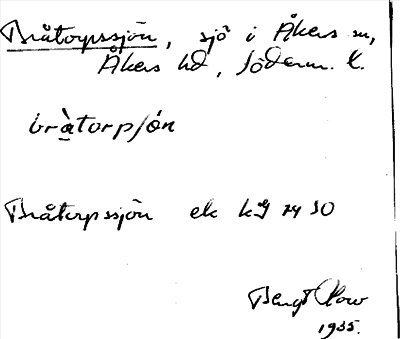 Bråtorpssjön, sjö i Åkers sn,
Åkers hd, Söderm. l.
bràtorpʃón
Bråtorpssjön ek
Bengt
1935.